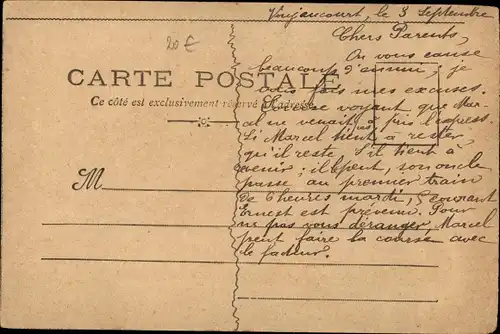 Vaujaucourt, le 3 Septembre
20 €
Chers Parents,
On vous cause
beaucoup d'ennui; je
vous fais mes excuses.
voyant que Mar-
cel ne venait pas a pris l'express.
Si Marcel tient à rester
qu'il reste. S'il tient à
venir; il peut, son oncle
passe au premier train
de 6 heures mardi,
Ernest est prévenu. Pour
ne pas vous déranger, Marcel
peut faire la course avec
le facteur.
CARTE POSTALE
Ce côté est exclusivement réservé à l'adresse
M